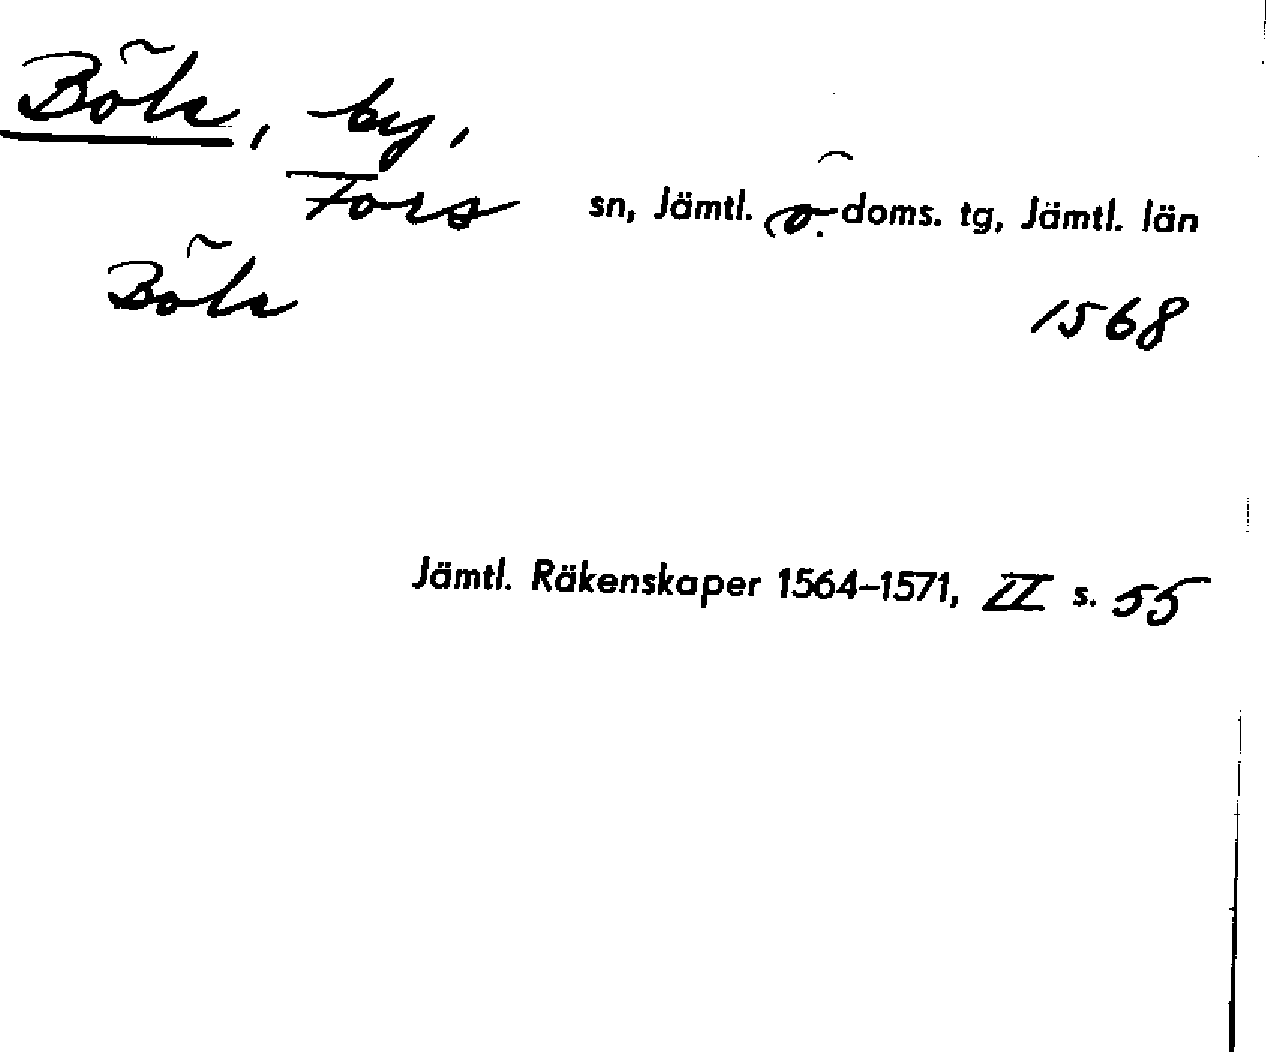 Böle, by,
Fors sn, Jämtl. ö. doms. tg, Jämtl. län
Böle 1568
Jämtl. Räkenskaper 1564–1571, II s. 55